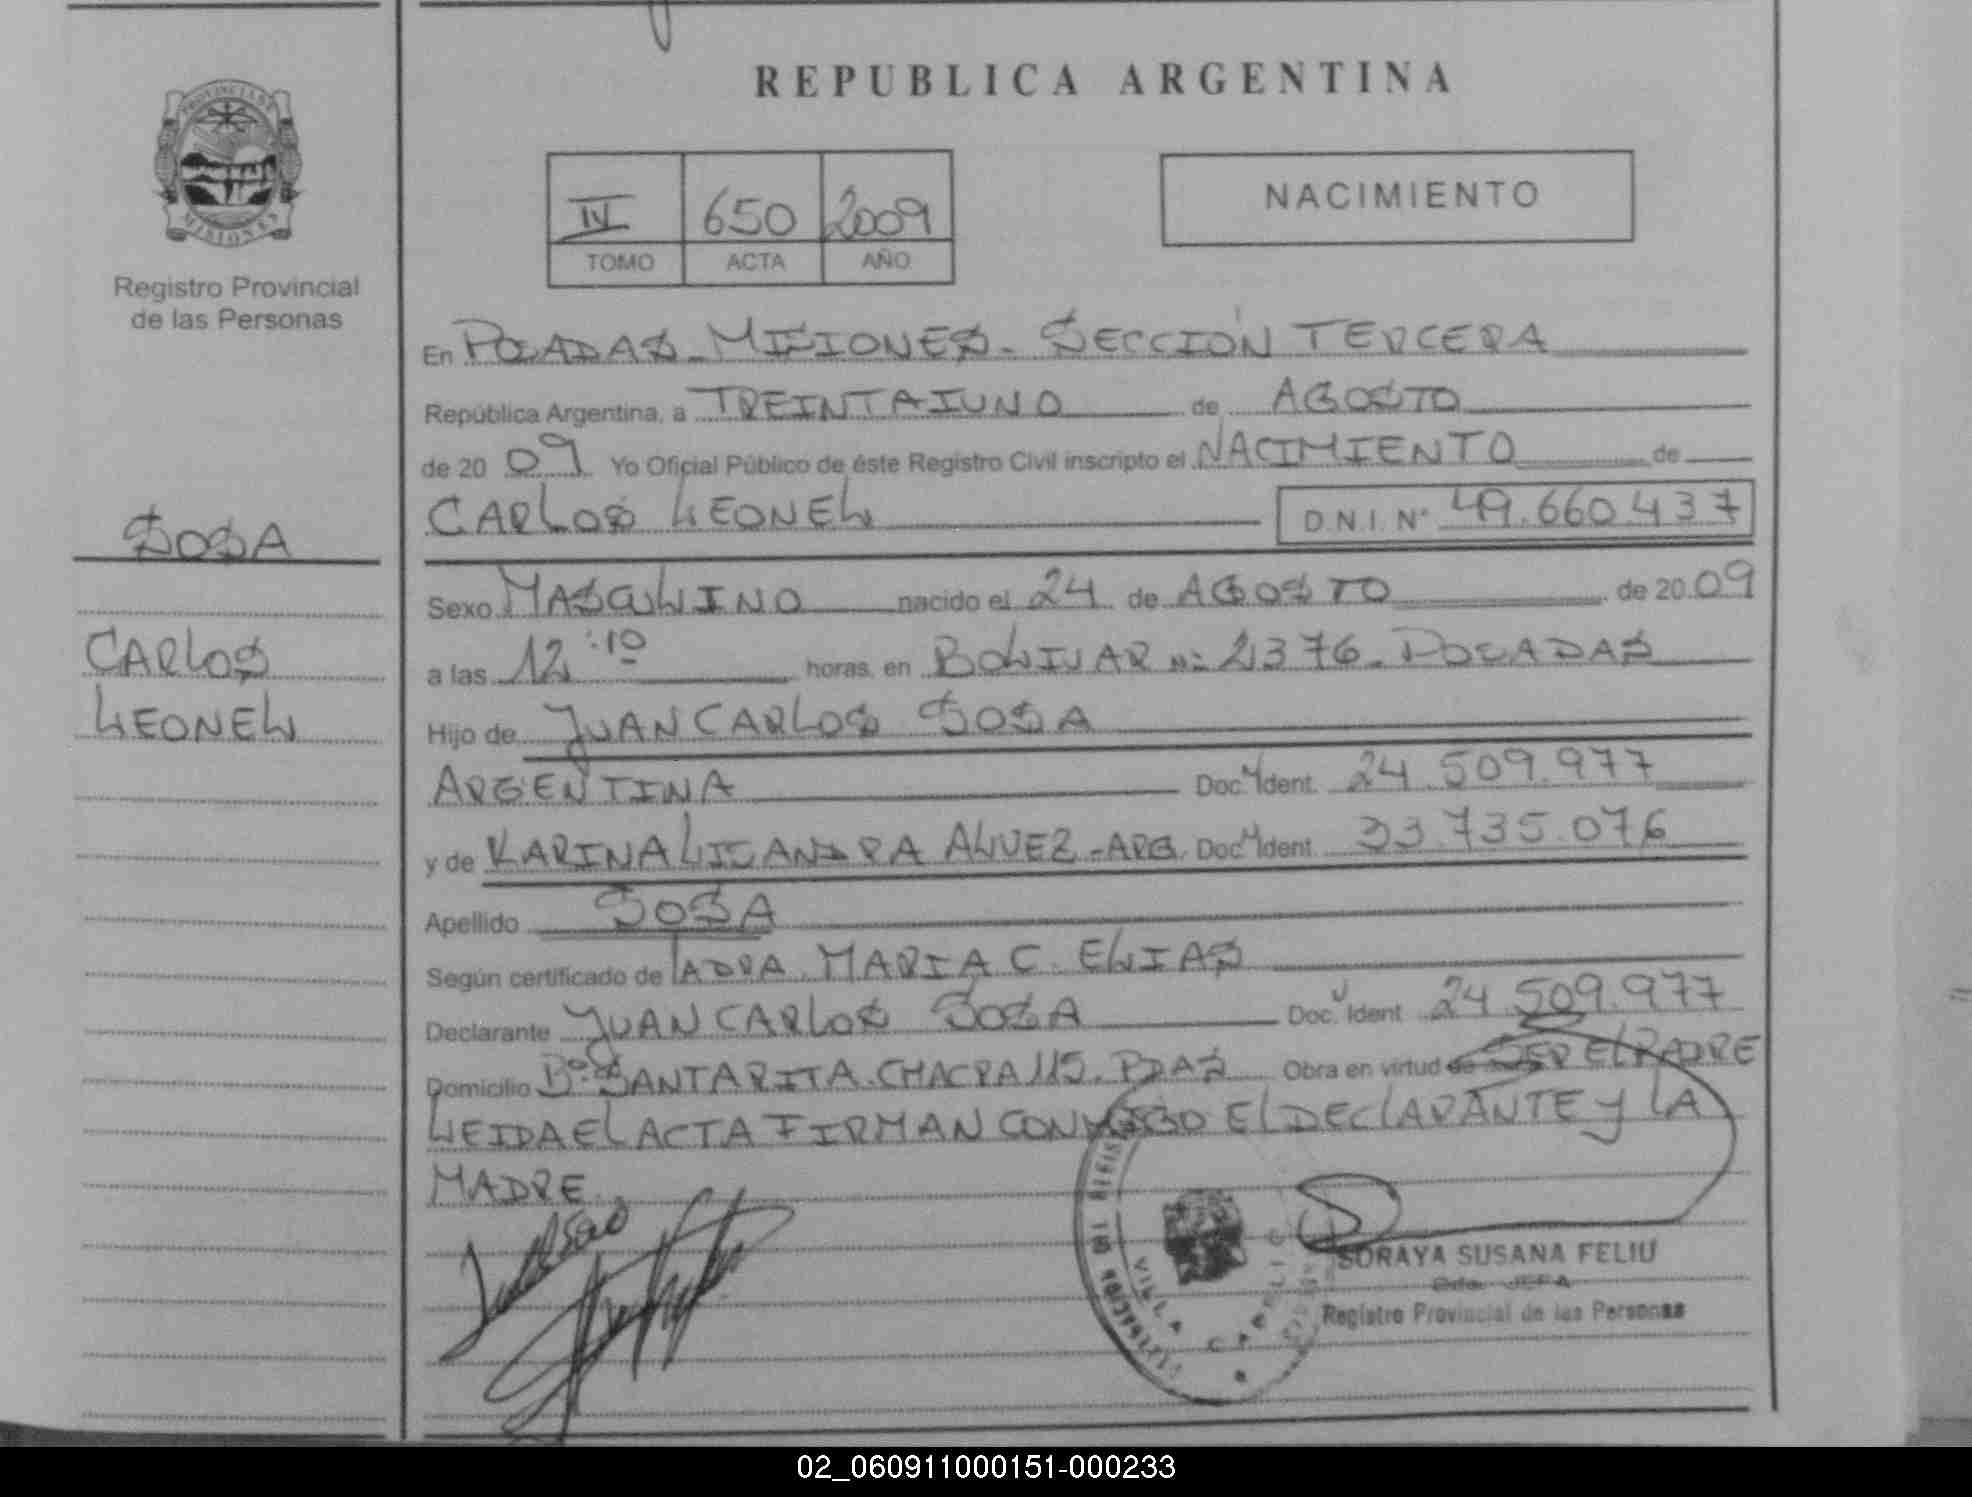 REPUBLICA ARGENTINA
PROVINCIA DE
MISIONES
Registro Provincial
de las Personas
IV 650 2009
TOMO ACTA AÑO
NACIMIENTO
En POSADAS - MISIONES - SECCIÓN TERCERA
República Argentina, a TREINTAIUNO de AGOSTO
de 20 09 Yo Oficial Público de éste Registro Civil inscripto el NACIMIENTO de
CARLOS LEONEL D.N.I. N° 49.660.437
SOSA
CARLOS
LEONEL
Sexo MASCULINO nacido el 24 de AGOSTO de 20 09
a las 12:10 horas, en BOLIVAR N° 2376 - POSADAS
Hijo de JUAN CARLOS SOSA
ARGENTINA Doc. Ident. 24.509.977
y de KARINA LISANDRA ALVEZ - ARG. Doc. Ident. 33.735.076
Apellido SOSA
Según certificado de MARIA C. ELIAS
Declarante JUAN CARLOS SOSA Doc. Ident 24.509.977
Domicilio B° SANTA RITA. CHACRA 115. PDAS Obra en virtud de SER EL PADRE
LEIDA EL ACTA FIRMAN CONMIGO EL DECLARANTE Y LA
MADRE.
VILLA CABELLO
SORAYA SUSANA FELIU
JEFA
Registro Provincial de las Personas
02_060911000151-000233